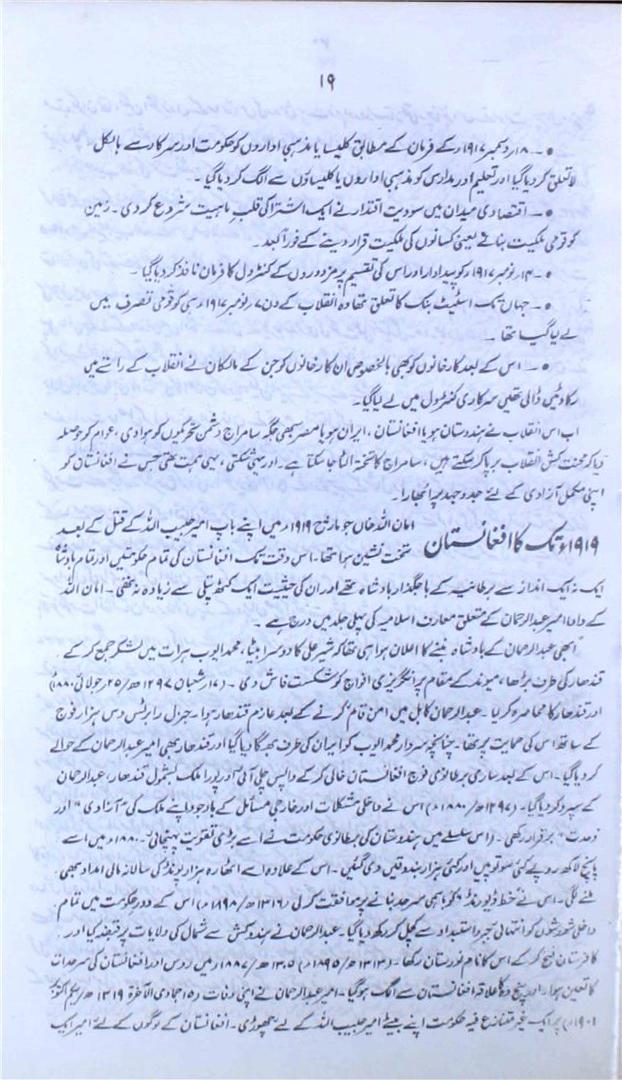 ۱۹
● ۔ ۱۸ دسمبر ۱۹۱۷ء کے فرمان کے مطابق کلیسا یا مذہبی اداروں کو حکومت اور سرکار سے بالکل
لاتعلق کر دیا گیا اور تعلیم اور مدارس کو مذہبی اداروں یا کلیساؤں سے الگ کر دیا گیا ۔
● ۔ اقتصادی میدان میں سودیت اقتدار نے ایک اشتراکی قلب ماہیت شروع کر دی ۔ زمین
کو قومی ملکیت بنانے یعنی کسانوں کی ملکیت قرار دینے کے فوراً بعد ۔
● ۔ ۱۴ نومبر ۱۹۱۷ء کو پیداوار اور اس کی تقسیم پر مزدوروں کے کنٹرول کا فرمان نافذ کر دیا گیا ۔
● ۔ جہاں تک اسٹیٹ بنک کا تعلق تھا وہ انقلاب کے دن ۷ نومبر ۱۹۱۷ء ہی کو قومی تصرف میں
لے لیا گیا تھا ۔
● ۔ اس کے بعد کارخانوں کو بھی بالخصوص ان کارخانوں کو جن کے مالکان نے انقلاب کے راستے میں
رکاوٹیں ڈالی تھیں سرکاری کنٹرول میں لے لیا گیا ۔
اب اس انقلاب نے ہندوستان ہو یا افغانستان ، ایران ہو یا مصر سبھی جگہ سامراج دشمنی تحریکوں کو ہوا دی ، عوام کو حوصلہ
دیا کہ محنت کش انقلاب برپا کر سکتے ہیں ، سامراج کا تختہ الٹا جا سکتا ہے ۔ اور یہی شکتی ، یہی ہمت تھی جس نے افغانستان کو
اپنی مکمل آزادی کے لئے جدوجہد پر ابھارا ۔
۱۹۱۹ء تک کا افغانستان امان اللہ خاں جو مارچ ۱۹۱۹ء میں اپنے باپ امیر حبیب اللہ کے قتل کے بعد
تخت نشین ہوا تھا ۔ اس وقت تک افغانستان کی تمام حکومتیں اور تمام بادشاہ
ایک نہ ایک انداز سے برطانیہ کے باجگذار بادشاہ تھے اور ان کی حیثیت ایک کٹھ پتلی سے زیادہ نہ تھی ۔ امان اللہ
کے دادا امیر عبدالرحمان کے متعلق معارف اسلامیہ کی پہلی جلد میں درج ہے ۔
ابھی عبدالرحمان کے بادشاہ بننے کا اعلان ہوا ہی تھا کہ شیر علی کا دوسرا بیٹا ، محمد ایوب ہرات میں لشکر جمع کر کے
قندھار کی طرف بڑھا ، میوند کے مقام پر انگریزی افواج کو شکست فاش دی ۔ (۱۷ شعبان ۱۲۹۷ھ / ۲۵ جولائی ۱۸۸۰ء)
اور قندھار کا محاصرہ کر لیا ۔ عبدالرحمان کابل میں امن قائم کرنے کے بعد عازم قندھار ہوا ۔ جنرل رابرٹس دس ہزار فوج
کے ساتھ اس کی حمایت پر تھا ۔ چنانچہ سردار محمد ایوب کو ایران کی طرف بھگا دیا گیا اور قندھار بھی امیر عبدالرحمان کے حوالے
کر دیا گیا ۔ اس کے بعد ساری برطانوی فوج افغانستان خالی کر کے واپس چلی آئی اور پورا ملک بشمول قندھار ، عبدالرحمان
کے سپرد کر دیا گیا ۔ (۱۲۹۷ھ / ۱۸۸۰ء) اس نے داخلی مشکلات اور خارجی مسائل کے باوجود اپنے ملک کی "آزادی" اور
وحدت" برقرار رکھی ۔ (اس سلسلے میں ہندوستان کی برطانوی حکومت نے اسے بڑی تقویت پہنچائی ۔ ۱۸۸۰ء میں اسے
پانچ لاکھ روپے کئی سو توپیں اور کئی ہزار بندوقیں دی گئیں ۔ اس کے علاوہ اسے اٹھارہ ہزار پونڈ کی سالانہ مالی امداد بھی
ملنے لگی ۔ اس نے خط ڈیورنڈ" کو باہمی سرحد بنانے پر موافقت کر لی (۱۳۱۶ھ / ۱۸۹۸ء) اس کے دور حکومت میں تمام
داخلی شورشوں کو انتہائی جبر و استبداد سے کچل کر رکھ دیا گیا ۔ عبدالرحمان نے ہندوکش سے شمال کی ولایات پر قبضہ کیا اور
کافرستان فتح کر کے اس کا نام نورستان رکھا ۔ (۱۳۱۳ھ / ۱۸۹۵ء) ۱۳۰۵ھ / ۱۸۸۷ء میں روس اور افغانستان کی سرحدات
کا تعین ہوا ۔ اور پنج دہ کا علاقہ افغانستان سے الگ ہو گیا ۔ امیر عبدالرحمان نے اپنی وفات (۱۵ جمادی الآخرہ ۱۳۱۹ھ / یکم اکتوبر
۱۹۰۱ء) پر ایک غیر متنازعہ فیہ حکومت اپنے بیٹے امیر حبیب اللہ کے لیے چھوڑی ۔ افغانستان کے لوگوں کے لئے امیر ایک